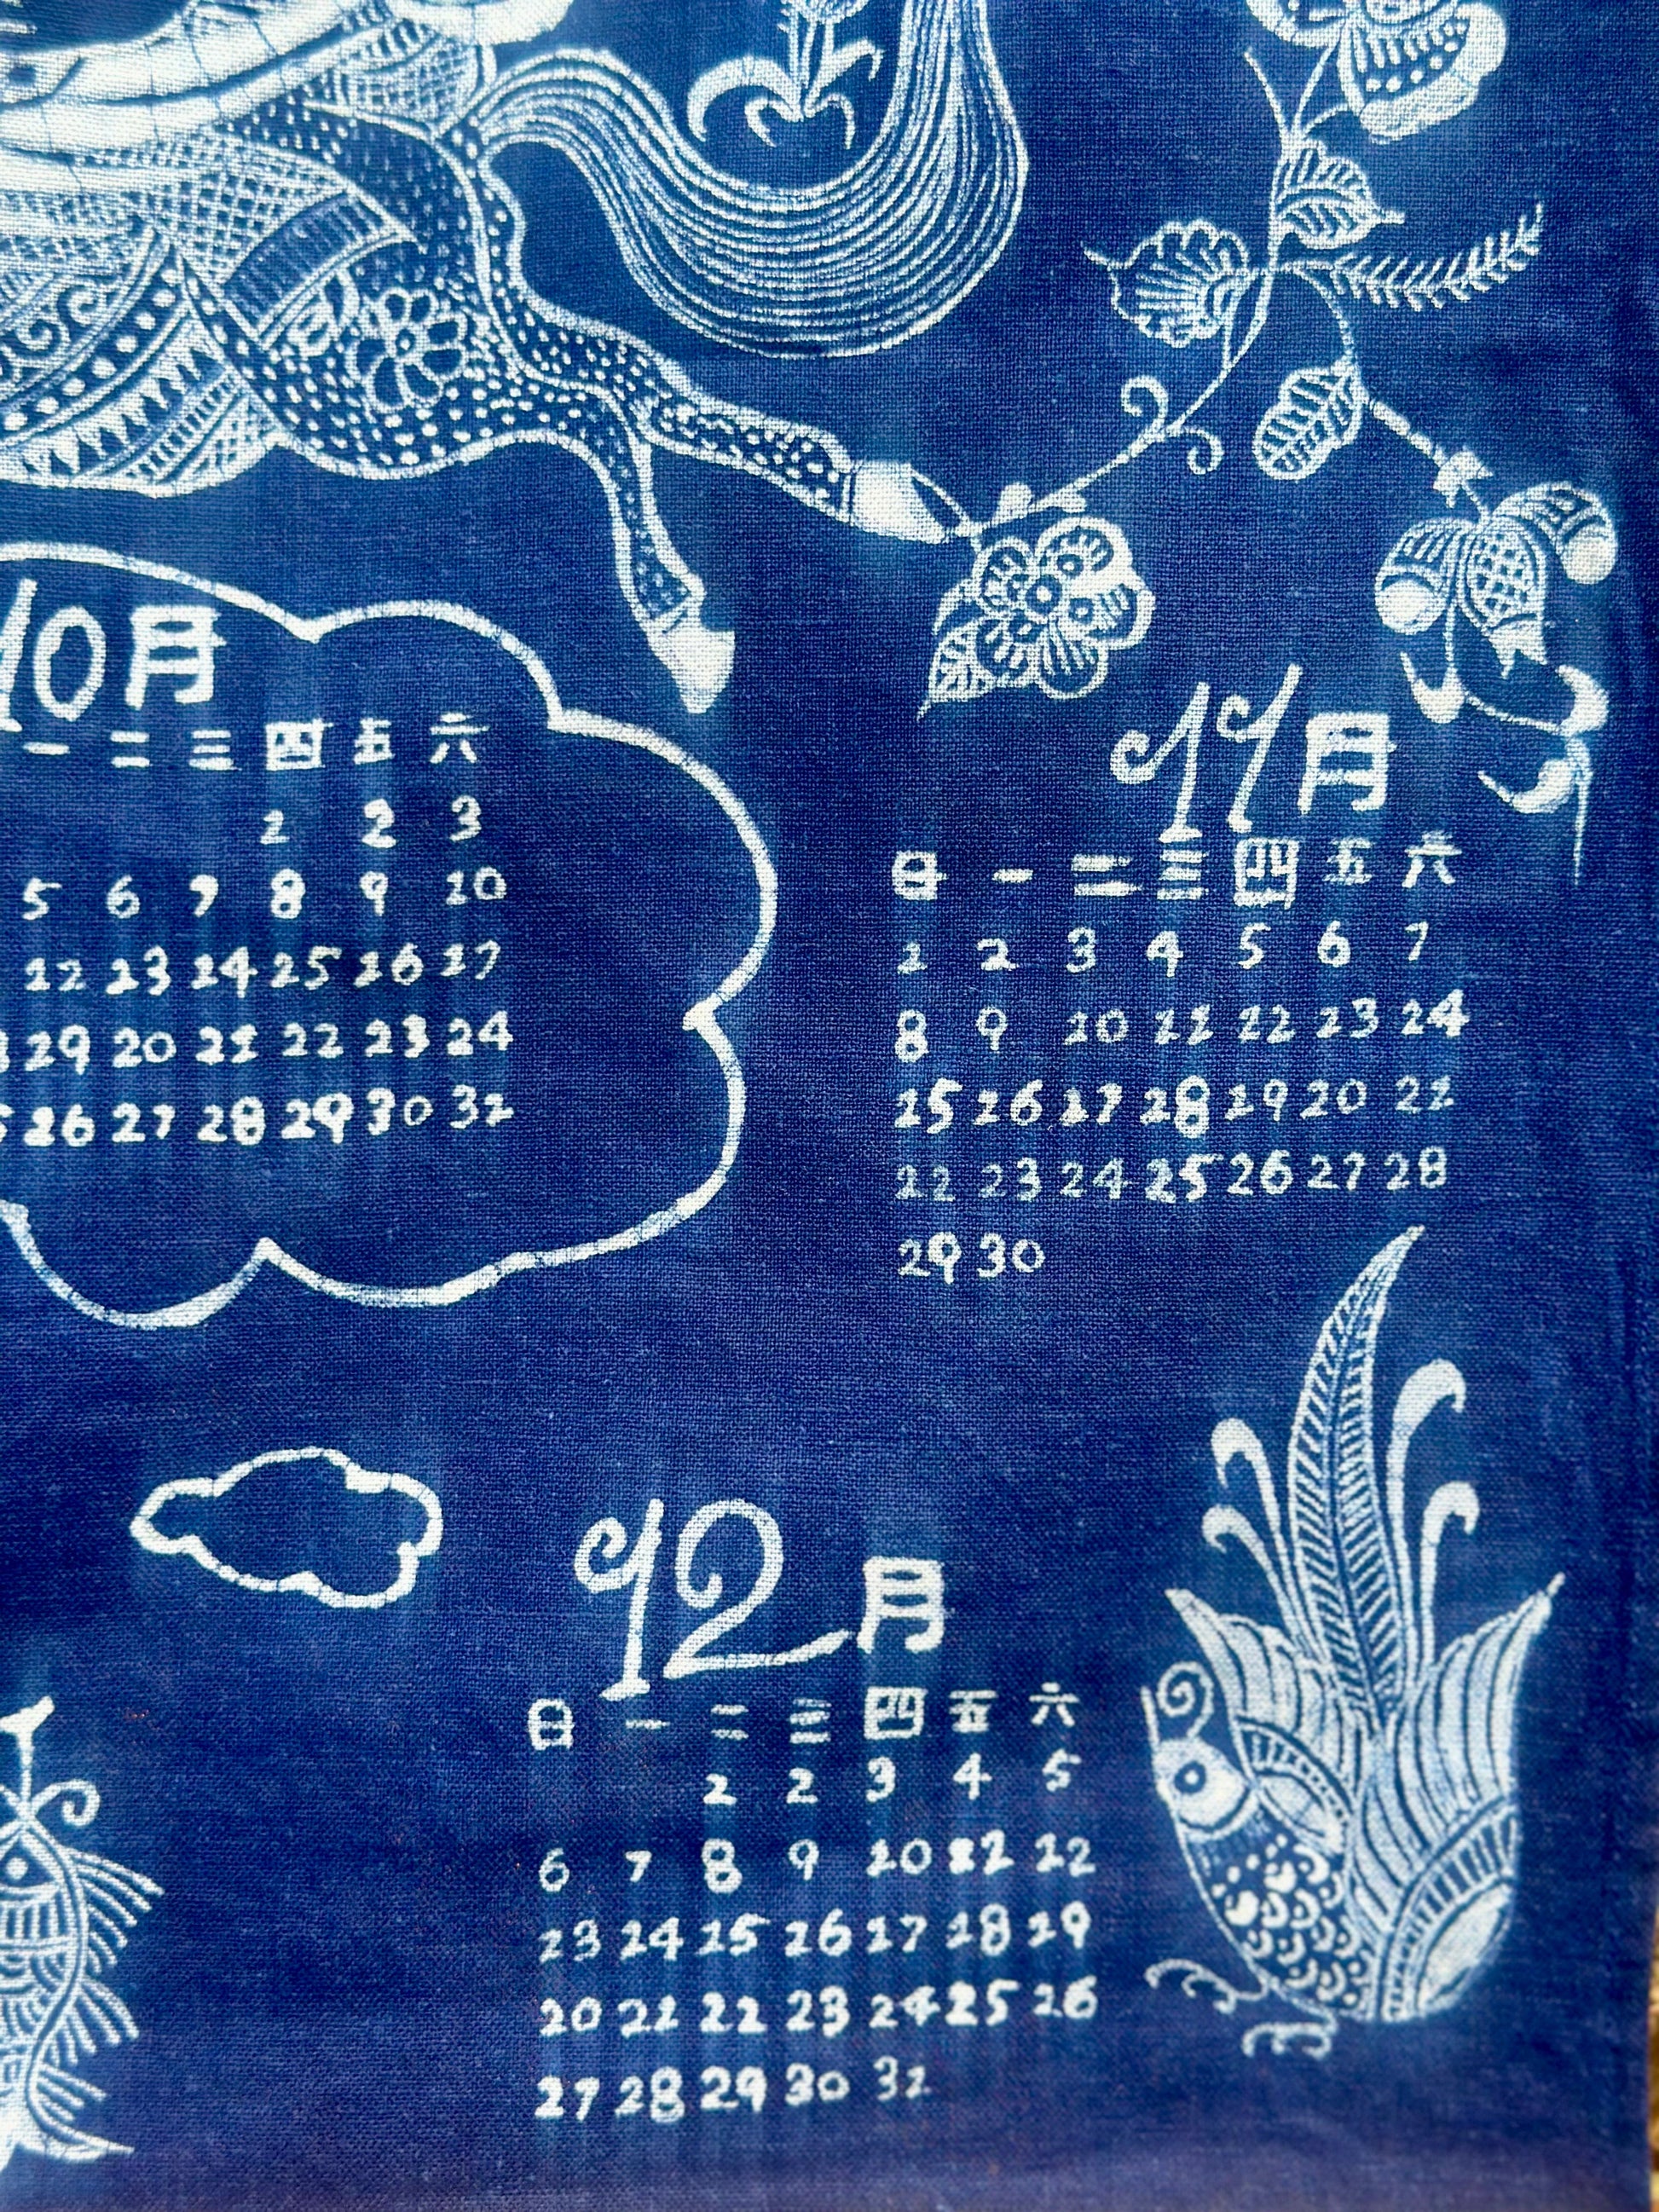 10月
一 二 三 四 五 六
1 2 3
5 6 7 8 9 10
12 13 14 15 16 17
19 20 21 22 23 24
26 27 28 29 30 31
11月
日 一 二 三 四 五 六
1 2 3 4 5 6 7
8 9 10 11 12 13 14
15 16 17 18 19 20 21
22 23 24 25 26 27 28
29 30
12月
日 一 二 三 四 五 六
1 2 3 4 5
6 7 8 9 10 11 12
13 14 15 16 17 18 19
20 21 22 23 24 25 26
27 28 29 30 31